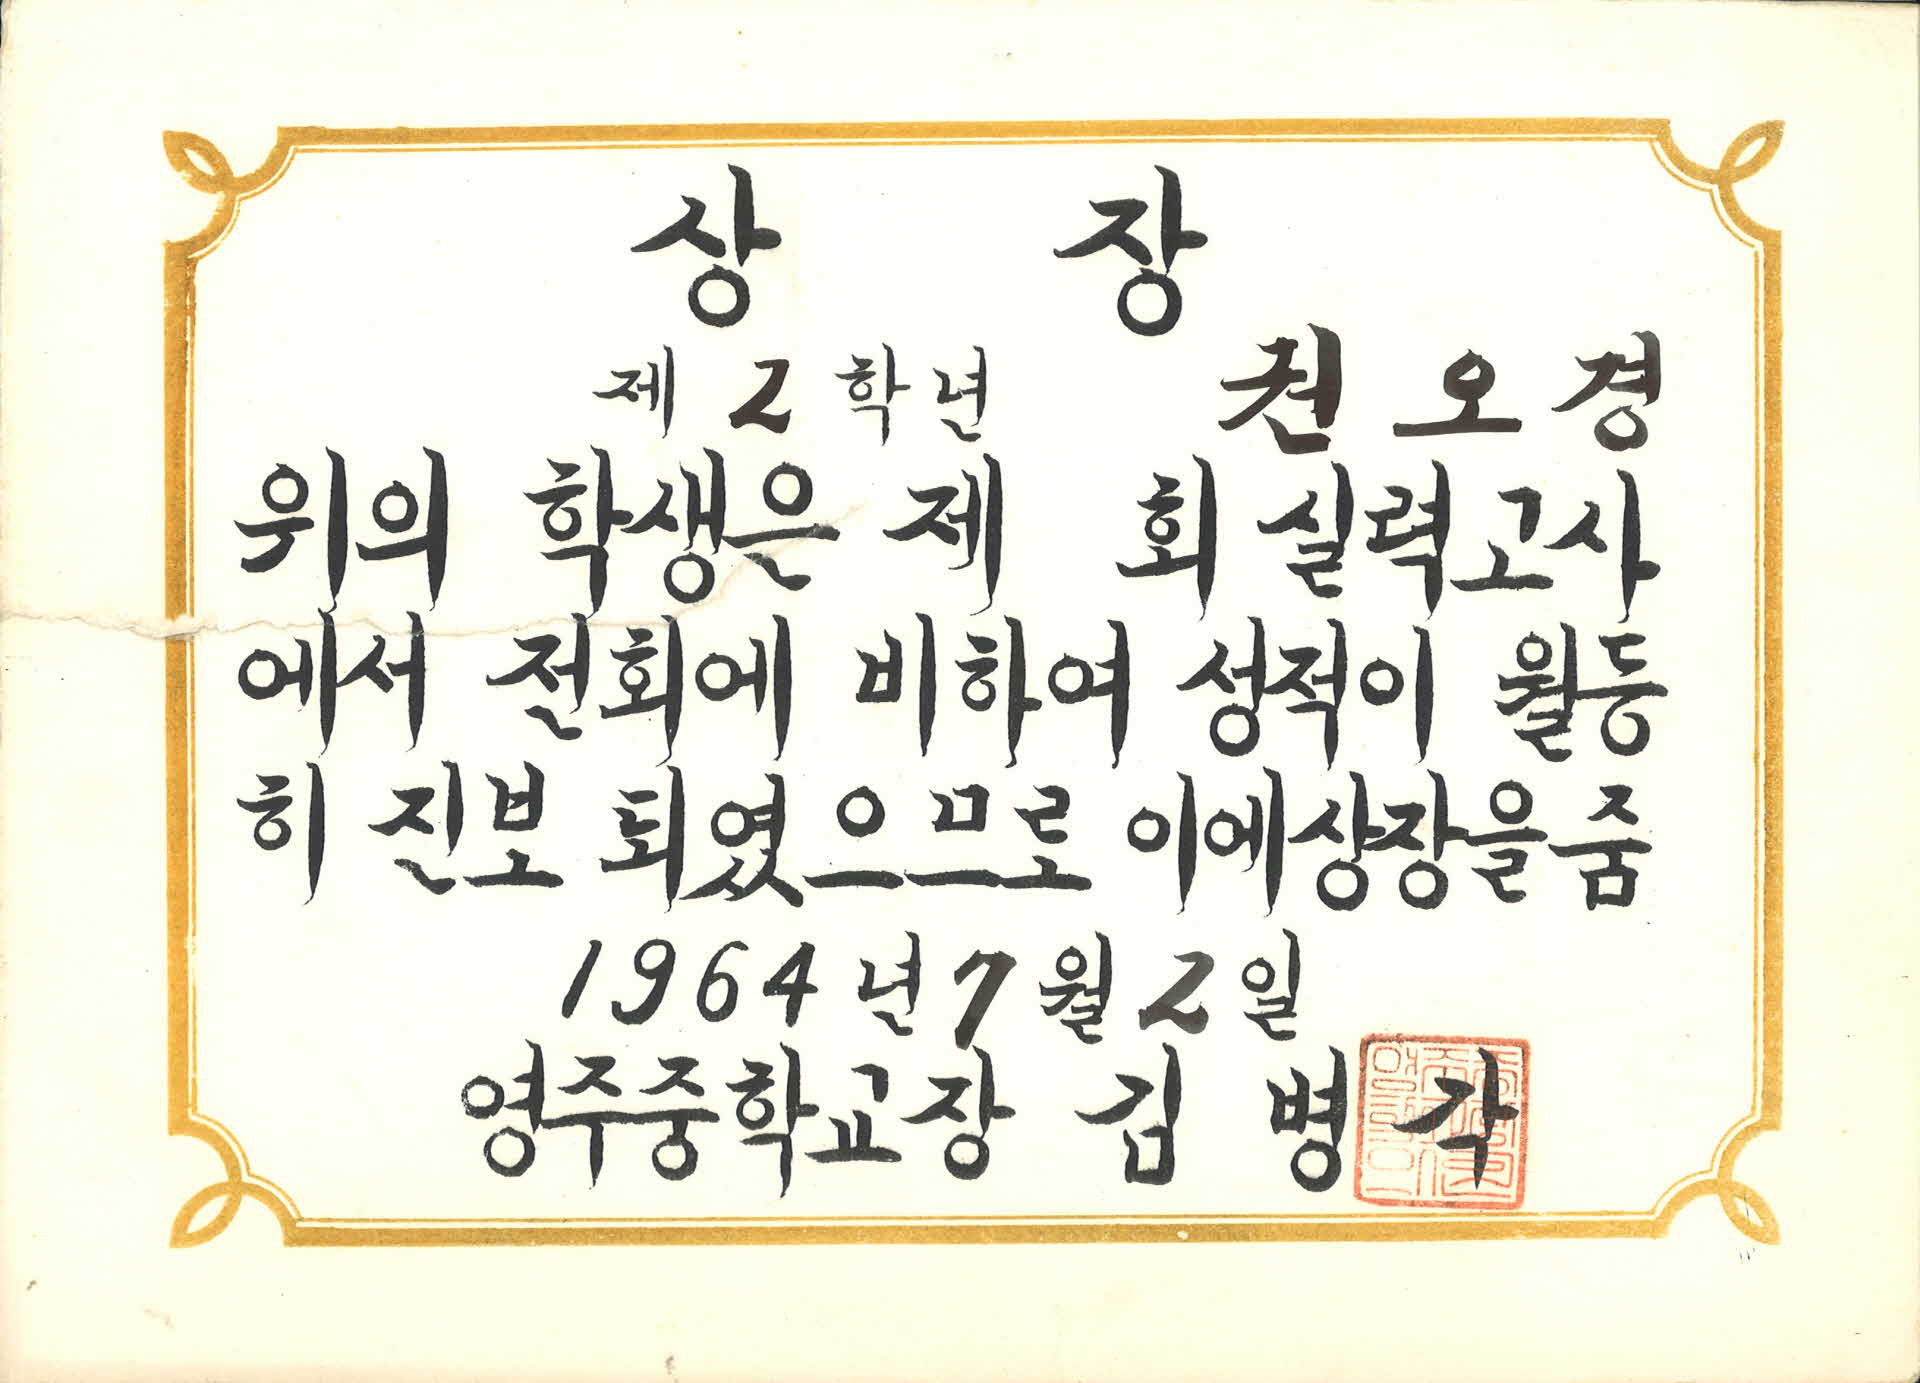 상 장
제 2 학년 권 오 경
위의 학생은 제 회 실력고사
에서 전회에 비하여 성적이 월등
히 진보 되였으므로 이에상장을줌
1964년 7월 2일
영주중학교장 김 병 각